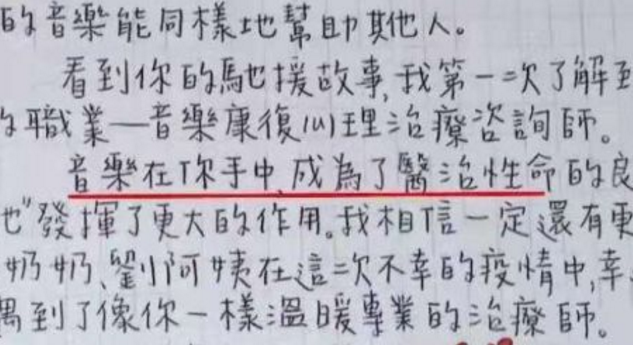 的音樂能同樣地幫助其他人。
看到你的馳援故事,我第一次了解到
職業—音樂康復心理治療咨詢師。
音樂在你手中,成為了醫治性命的良
也"發揮了更大的作用。我相信一定還有更
奶奶、劉小阿姨在這次不幸的疫情中,幸
遇到了像你一樣溫暖專業的治療師。